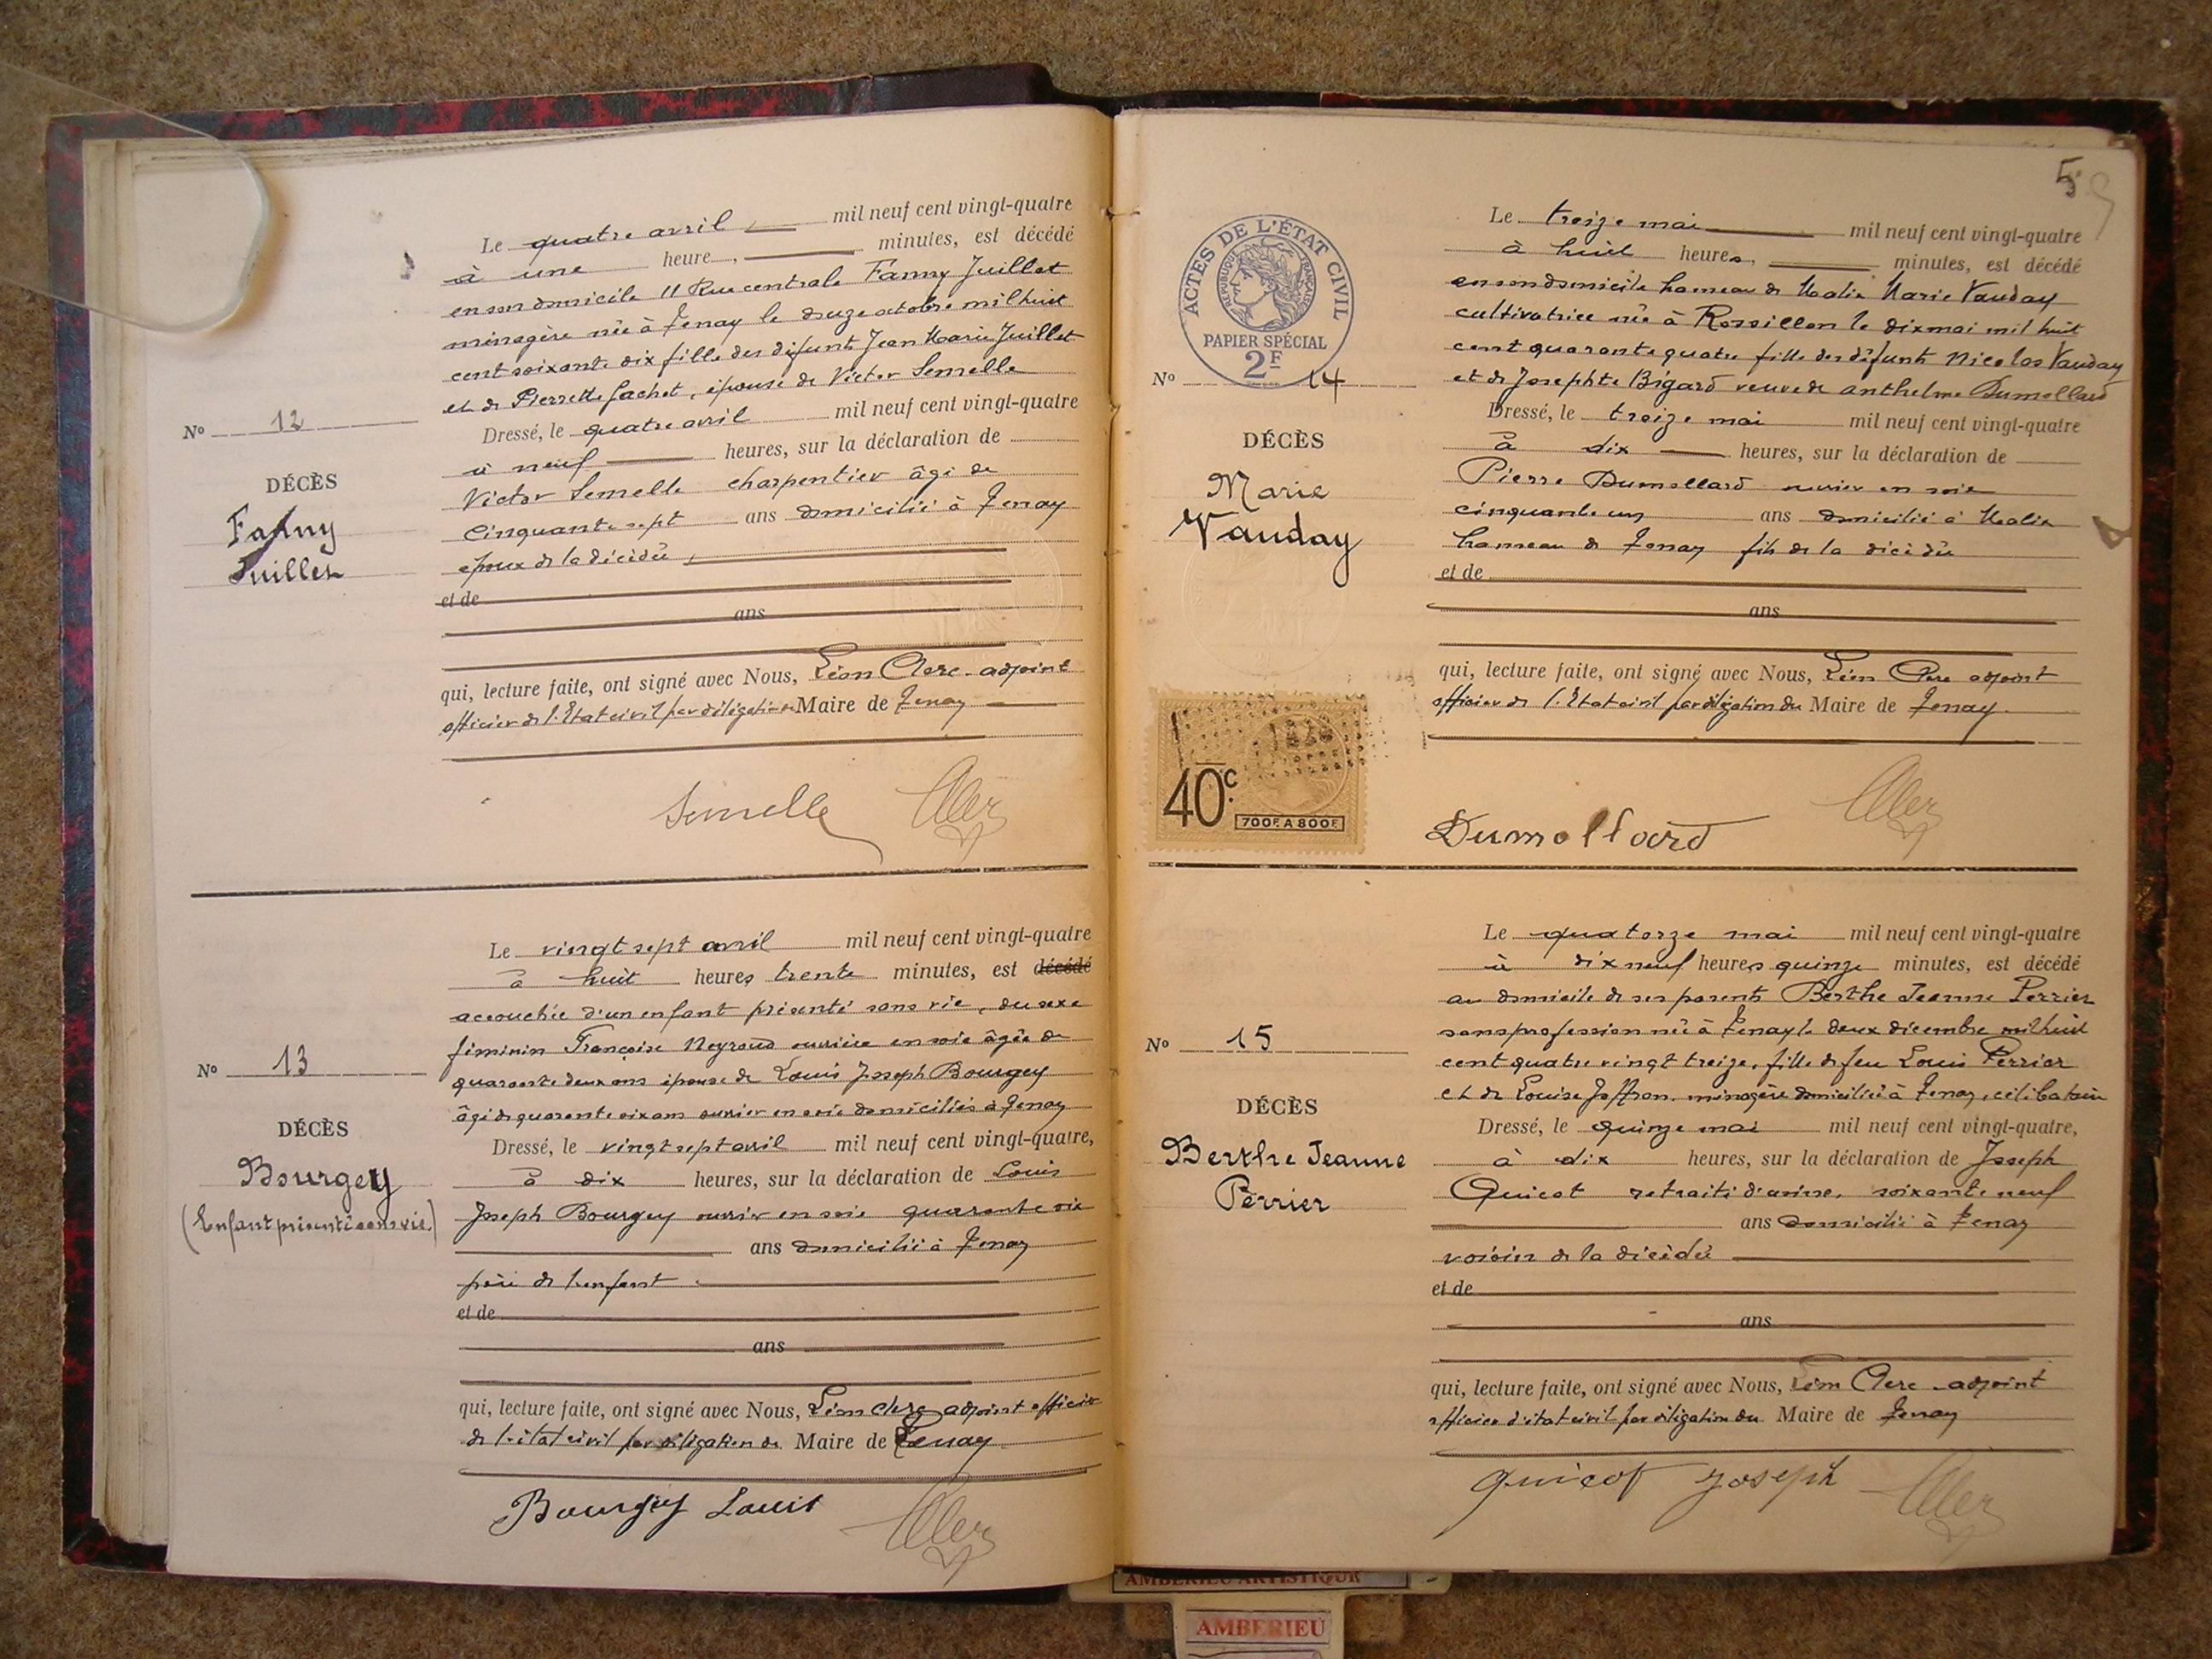 Le quatre avril, mil neuf cent vingt-quatre
à une heure, minutes, est décédé
en son domicile 11 Rue centrale Fanny Juillet
ménagère née à Tenay le douze octobre mil huit
cent soixante dix fille des défunts Jean Marie Juillet
et de Pierrette Gachet, épouse de Victor Semelle
Dressé, le quatre avril mil neuf cent vingt-quatre
à neuf heures, sur la déclaration de
Victor Semelle charpentier âgé de
cinquante sept ans domicilié à Tenay
époux de la décédée,
et de
ans
qui, lecture faite, ont signé avec Nous, Léon Clerc adjoint
officier de l'Etat civil par délégation Maire de Tenay
Semelle Clerc
No 12
DÉCÈS
Fanny
Juillet
Le vingt sept avril mil neuf cent vingt-quatre
à huit heures trente minutes, est décédé
accouchée d'un enfant présenté sans vie, du sexe
féminin Françoise Neyroud ouvrière en soie âgée de
quarante deux ans épouse de Louis Joseph Bourgey
âgé de quarante six ans ouvrier en soie domiciliés à Tenay
Dressé, le vingt sept avril mil neuf cent vingt-quatre,
à dix heures, sur la déclaration de Louis
Joseph Bourgey ouvrier en soie quarante six
ans domicilié à Tenay
père de l'enfant.
et de
ans
qui, lecture faite, ont signé avec Nous, Léon Clerc adjoint officier
de l'état civil par délégation du Maire de Tenay
Bourgey Louis Clerc
No 13
DÉCÈS
Bourgey
(Enfant présenté sans vie.)
5
ACTES DE L'ÉTAT CIVIL
RÉPUBLIQUE FRANÇAISE
PAPIER SPÉCIAL
2F
No 14
DÉCÈS
Marie
Vauday
40c.
700F. A 800F.
Le treize mai mil neuf cent vingt-quatre
à huit heures, minutes, est décédé
en son domicile hameau de Malix Marie Vauday
cultivatrice née à Rossillon le dix mai mil huit
cent quarante quatre fille des défunts Nicolas Vauday
et de Josephte Bigard veuve de Anthelme Dumollard
Dressé, le treize mai mil neuf cent vingt-quatre
à dix heures, sur la déclaration de
Pierre Dumollard ouvrier en soie
cinquante un ans domicilié à Malix
hameau de Tenay fils de la décédée
et de
ans
qui, lecture faite, ont signé avec Nous, Léon Clerc adjoint
officier de l'Etat civil par délégation du Maire de Tenay.
Dumollard Clerc
No 15
DÉCÈS
Berthe Jeanne
Perrier
Le quatorze mai mil neuf cent vingt-quatre
à dix neuf heures quinze minutes, est décédé
au domicile de ses parents Berthe Jeanne Perrier
sans profession née à Tenay le deux décembre mil huit
cent quatre vingt treize, fille de feu Louis Perrier
et de Louise Joffron, ménagère domiciliée à Tenay, célibataire
Dressé, le quinze mai mil neuf cent vingt-quatre,
à dix heures, sur la déclaration de Joseph
Quicot retraité d'usine, soixante neuf
ans domicilié à Tenay
voisin de la décédée
et de
ans
qui, lecture faite, ont signé avec Nous, Léon Clerc adjoint
officier d'état civil par délégation du Maire de Tenay
Quicot Joseph Clerc
AMBERIEU ARTISTIQUE
AMBERIEU